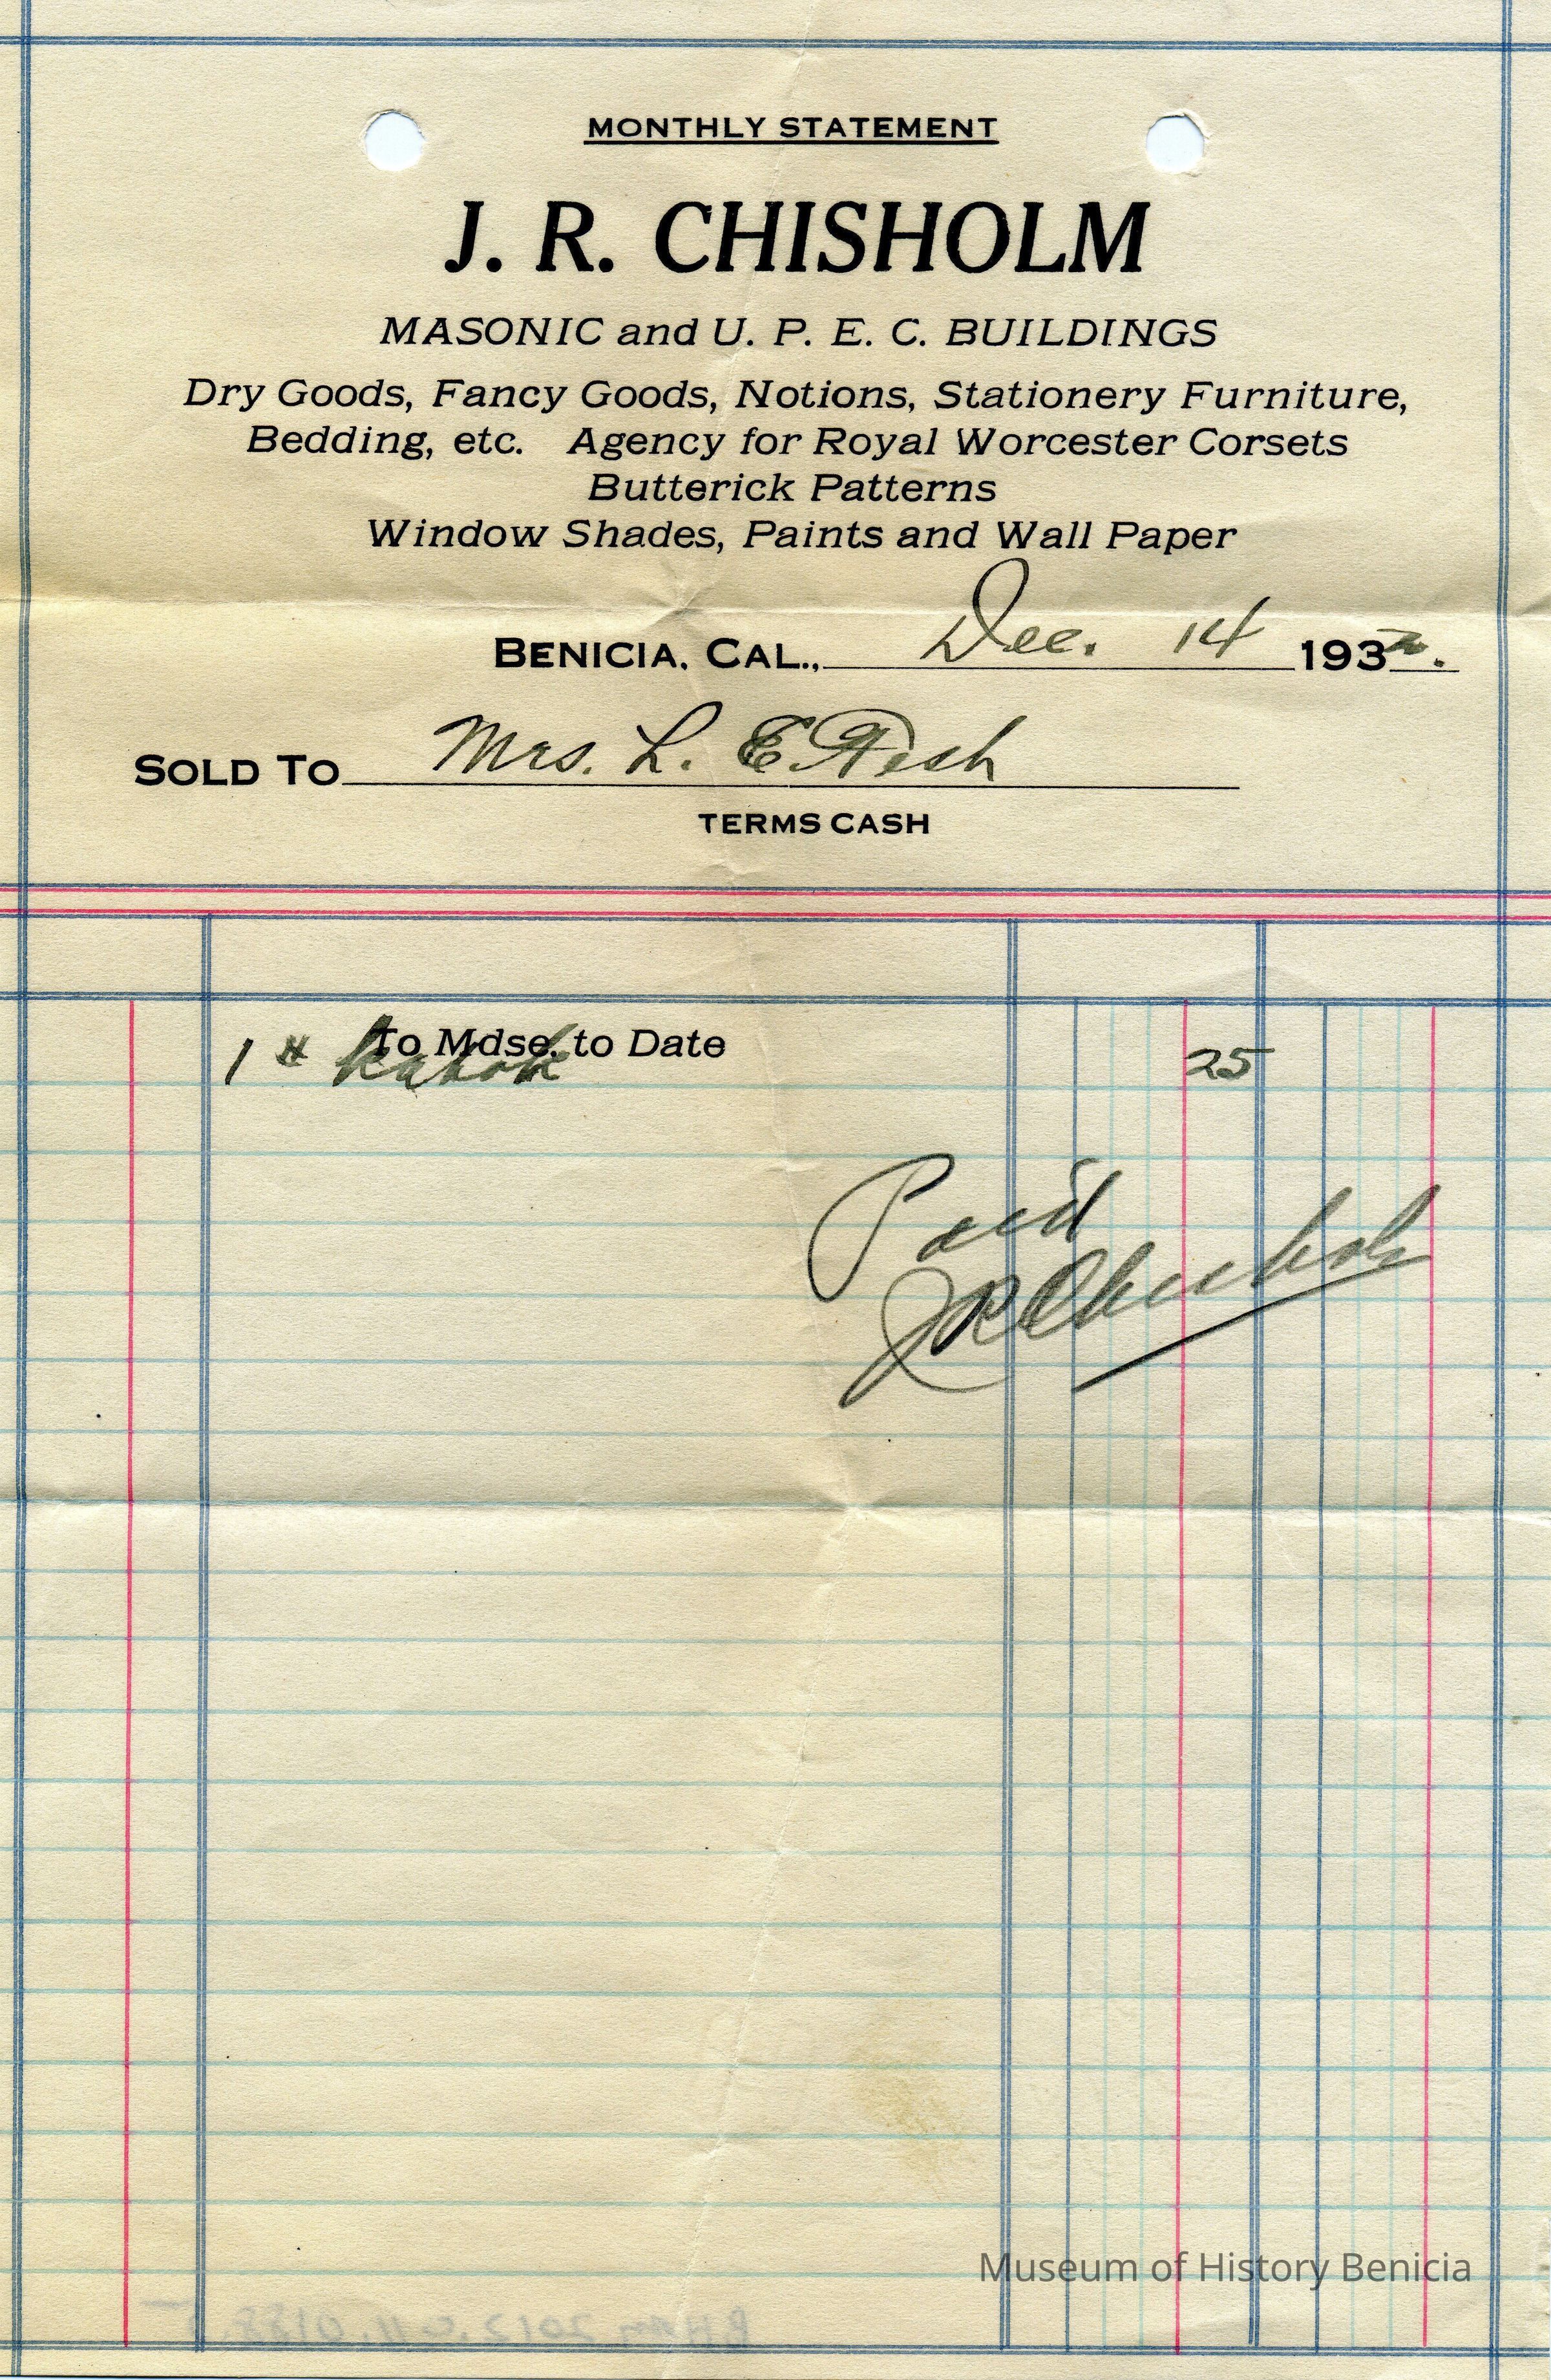 MONTHLY STATEMENT
J. R. CHISHOLM
MASONIC and U. P. E. C. BUILDINGS
Dry Goods, Fancy Goods, Notions, Stationery Furniture,
Bedding, etc. Agency for Royal Worcester Corsets
Butterick Patterns
Window Shades, Paints and Wall Paper
BENICIA, CAL., Dec. 14 1932.
SOLD TO Mrs. L. E.
TERMS CASH
To Mdse. to Date
1 # Kapok 25
Paid
JRChisholm
Museum of History Benicia